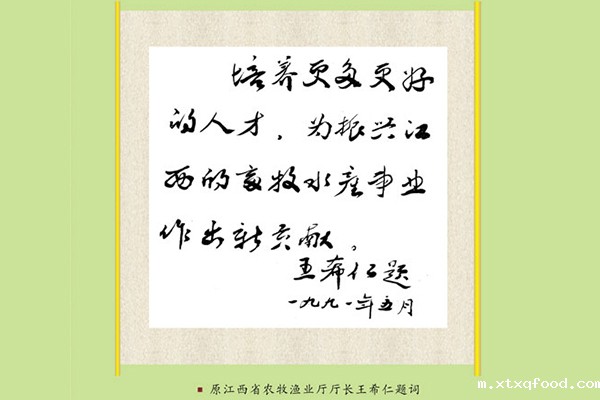 培养更多更好
的人才，为振兴江
西的畜牧水产事业
作出新贡献。
王希仁题
一九九一年五月
原江西省农牧渔业厅厅长王希仁题词
m.xtxqfood.com